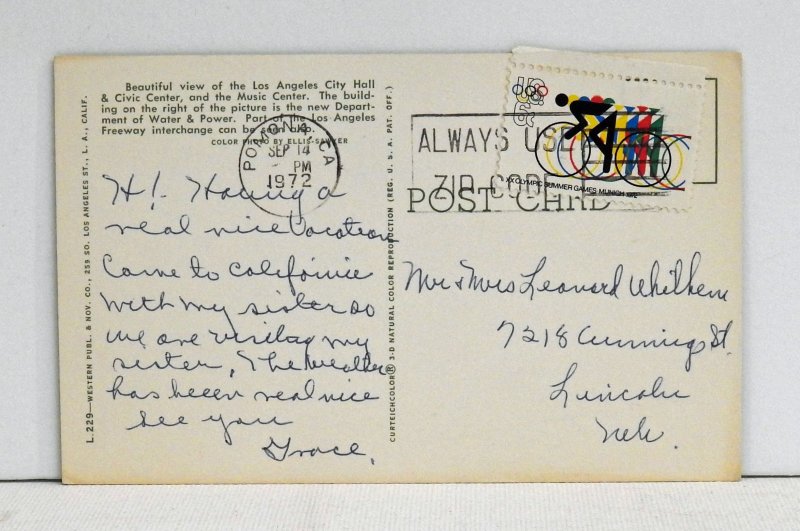 Beautiful view of the Los Angeles City Hall
& Civic Center, and the Music Center. The build-
ing on the right of the picture is the new Depart-
ment of Water & Power. Part of the Los Angeles
Freeway interchange can be seen also.
COLOR PHOTO BY ELLIS-SAWYER
L.229—WESTERN PUBL. & NOV. CO., 259 SO. LOS ANGELES ST., L. A., CALIF.
POMONA, CA
SEP 14
PM
1972
Hi! Having a
real nice Vacation
Came to California
with my sister so
we are visiting my
sister, The weather
has been real nice
see you
Grace,
CURTEICHCOLOR® 3-D NATURAL COLOR REPRODUCTION (REG. U. S. A. PAT. OFF.)
ALWAYS USE
ZIP CODE
XX OLYMPIC SUMMER GAMES MUNICH 1972
POST CARD
Mr & Mrs Leonard Whilhem
7218 Cummings St.
Lincoln
Neb.